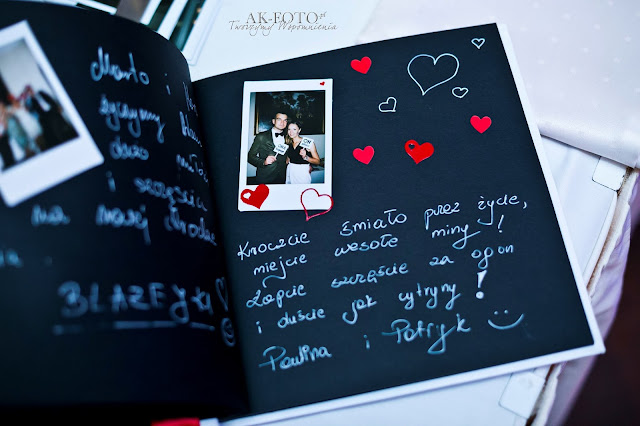 AK-FOTO.pl
Tworzymy Wspomnienia
Marto i
życzymy
dużo
i szczęścia
na
BLAZEJKI
Kroczcie śmiało przez życie,
miejcie wesołe miny!
Łapcie szczęście za ogon
i duście jak cytryny!
Paulina i Patryk